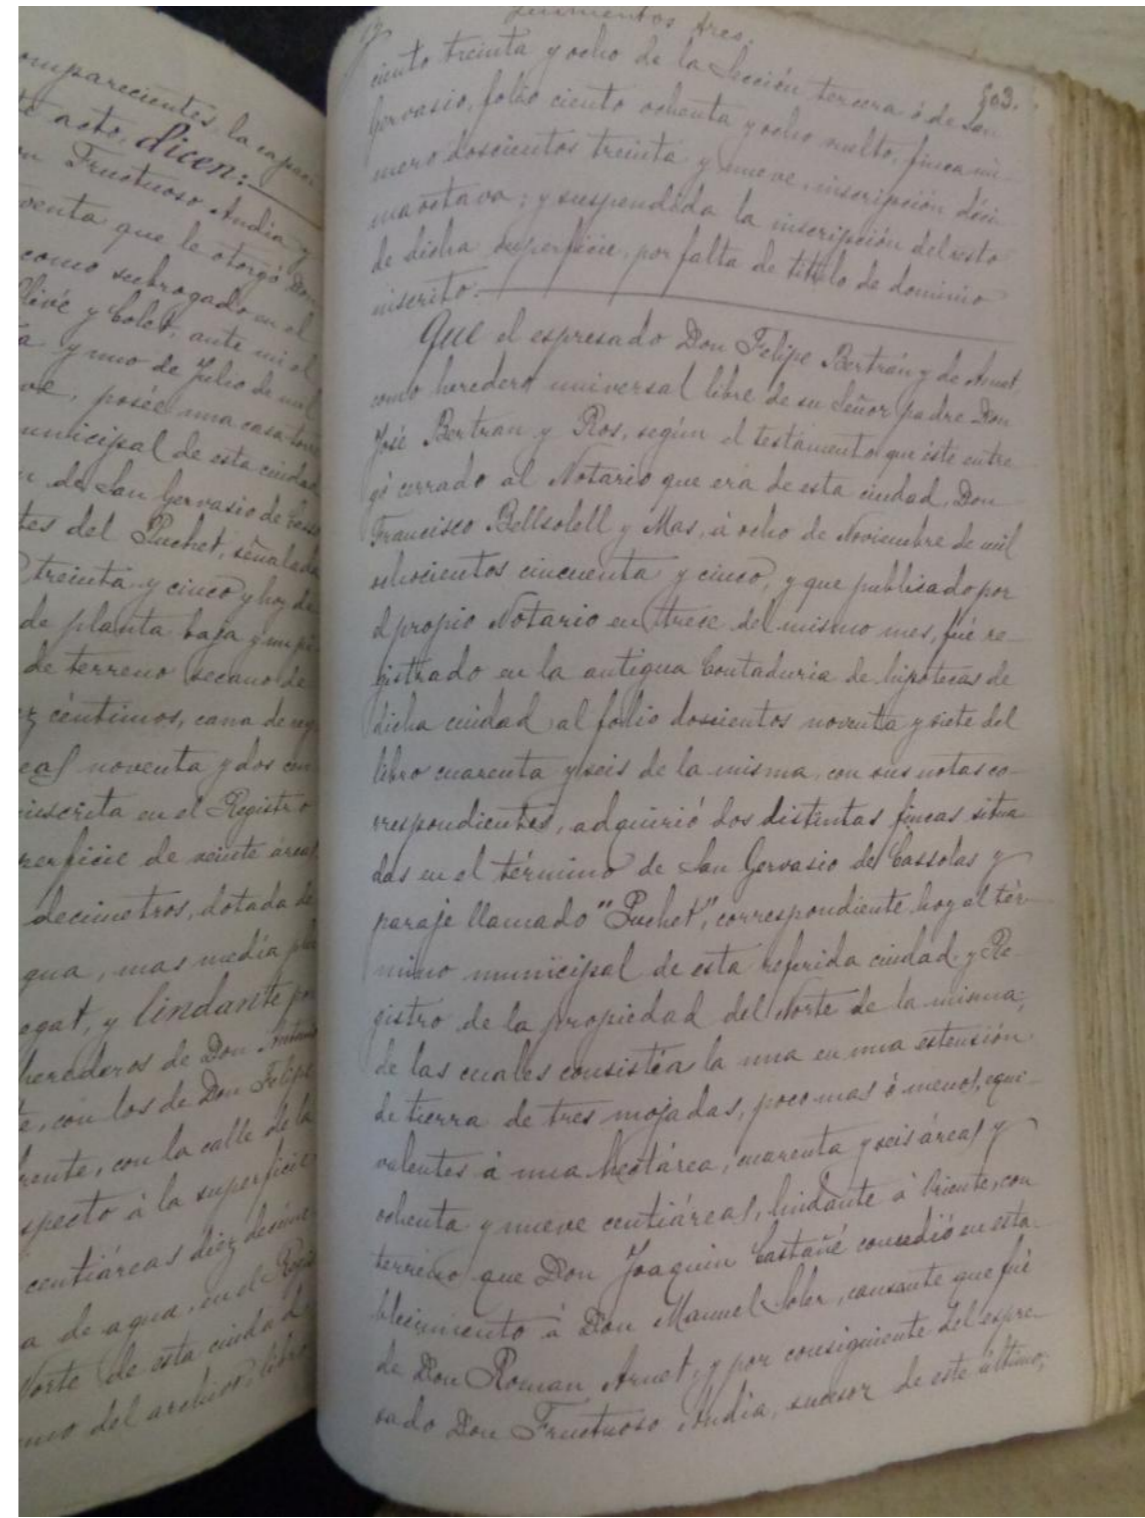 omparecientes, la capaci
te acto, dicen:
on Fructuoso Andia y
venta que le otorgó Don
como subrogado en el
Clivé y Colet, ante mi el
a y uno de Julio de mil
ve, poseé una casa torre
unicipal de esta ciudad
n de San Gervasio de Casso
tes del Puchet, señalada
treinta y cinco y hoy de
de planta baja y un pi
de terreno secano de
ez céntimos, cana de
eal noventa y dos cen
inscrita en el Registro
perficie de veinte áreas
decimetros, dotada de
gua, mas media plu
egat, y lindante por
herederos de Don Antonio
e, con los de Don Felipe
frente, con la calle de la
specto á la superficie
centiáreas diez decíme
a de agua, en el Regis
Norte de esta ciudad
omo del archivo, libro
quinientos tres.
503.
ciento treinta y ocho de la Sección tercera ó de San
Gervasio, folio ciento ochenta y ocho vuelto, finca nú-
mero doscientos treinta y nueve, inscripción déci
ma octava; y suspendida la inscripción del resto
de dicha superficie, por falta de título de dominio
inscrito.
Que el espresado Don Felipe Bertrán y de Amat,
como heredero universal libre de su Señor padre Don
José Bertran y Ros, según el testamento que éste entre
gó cerrado al Notario que era de esta ciudad, Don
Francisco Bellsolell y Mas, á ocho de Noviembre de mil
ochocientos cincuenta y cinco, y que publicado por
el propio Notario en trece del mismo mes, fué re-
gistrado en la antigua Contaduria de hipotecas de
dicha ciudad al folio doscientos noventa y siete del
libro cuarenta y seis de la misma, con sus notas co-
rrespondientes, adquirió dos distintas fincas situa
das en el término de San Gervasio de Cassolas y
paraje llamado "Puchet", correspondiente hoy al tér-
mino municipal de esta referida ciudad y Re-
gistro de la propiedad del Norte de la misma;
de las cuales consistía la una en una estensión
de tierra de tres mojadas, poco mas ó menos, equi-
valentes á una hectárea, cuarenta y seis áreas y
ochenta y nueve centiáreas, lindante á Oriente, con
terreno que Don Joaquin Castañé concedió en esta-
blecimiento á Don Manuel Soler, causante que fué
de Don Roman Arnet, y por consiguiente del espre-
sado Don Fructuoso Andia, sucesor de este último;